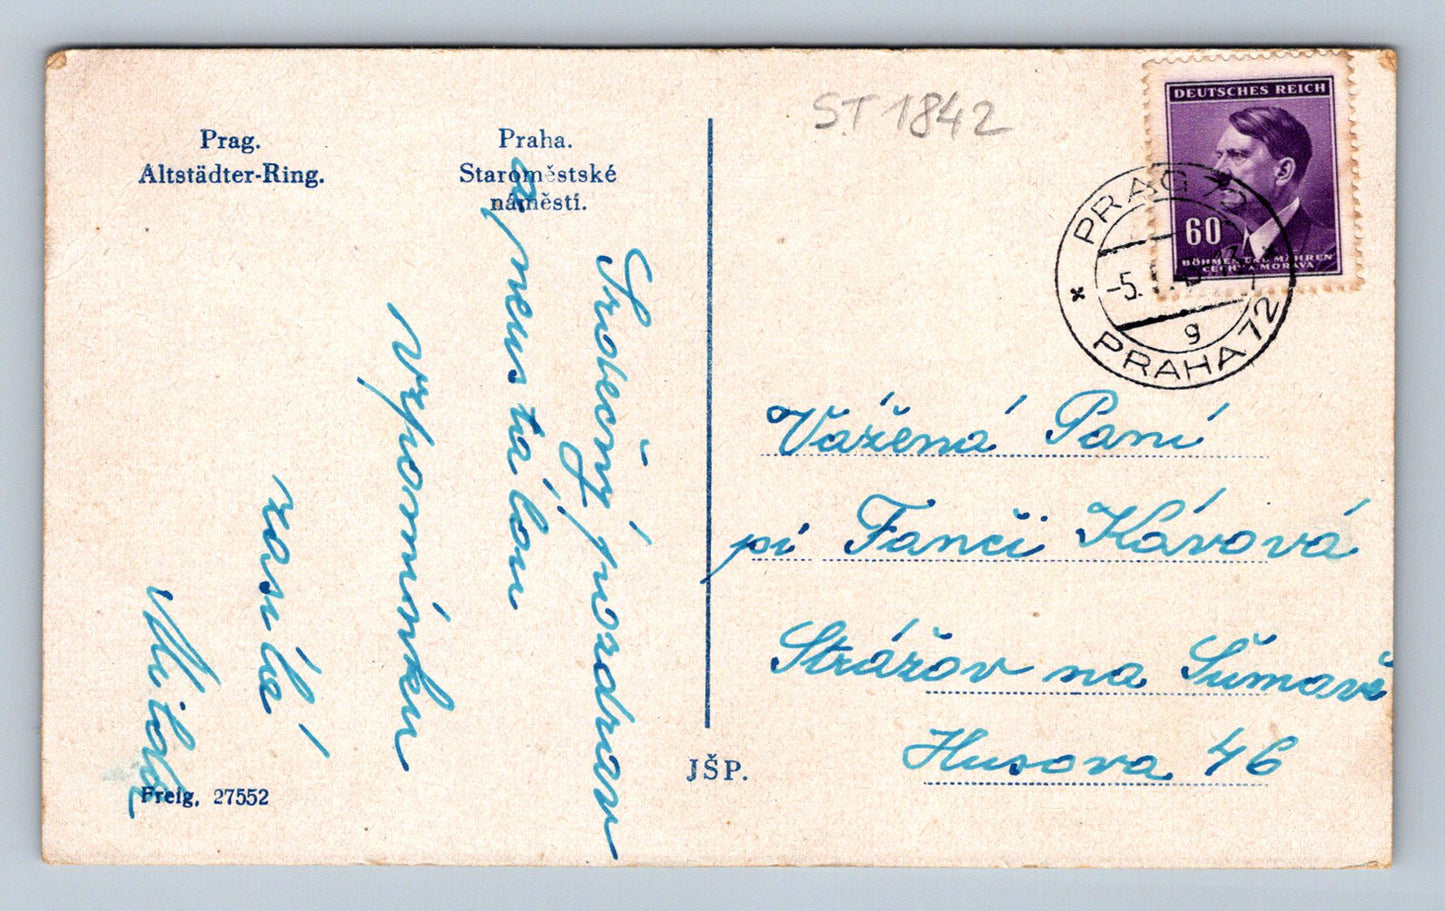 Prag.
Altstädter-Ring.
Praha.
Staroměstské
náměstí.
ST 1842
DEUTSCHES REICH
60
BÖHMEN UND MÄHREN
ČECHY A MORAVA
PRAG 72
-5.
g
PRAHA 72
Srdečný pozdrav
a
vzpomínku
zasílá
Milda
Vážená Paní
pí Fanči Kávová
Strážov na Šumavě
Husova 46
JŠP.
Freig, 27552